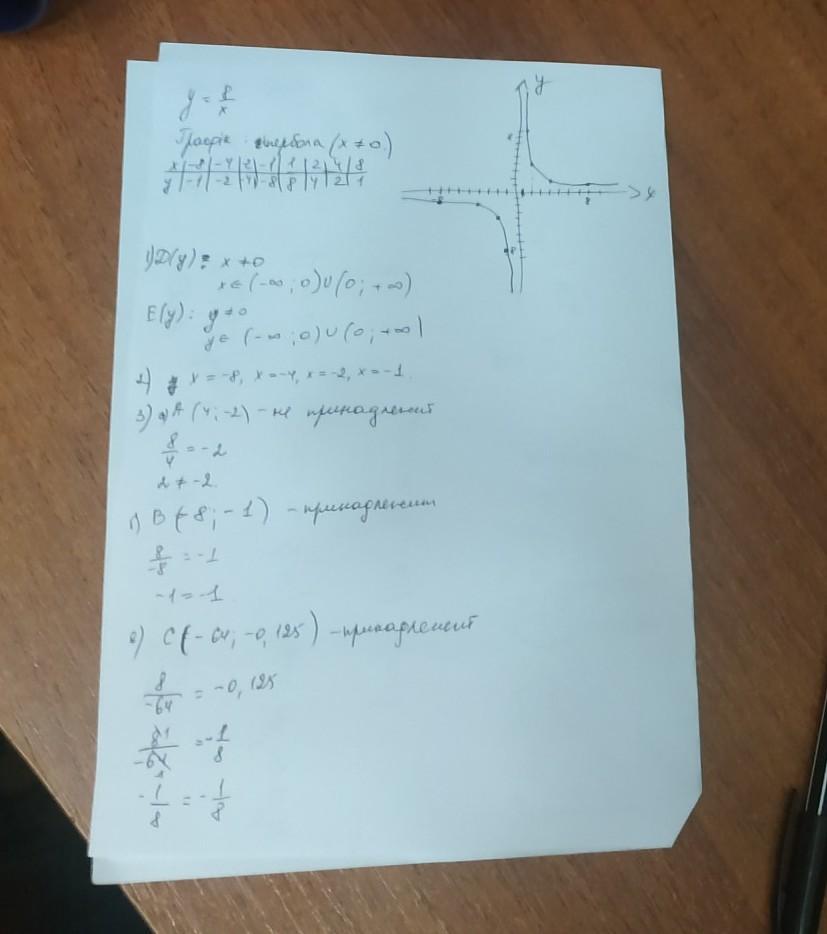 y = 8/x
График : гипербола (x ≠ 0)
x | -8 | -4 | 2 | -1 | 1 | 2 | 4 | 8
y | -1 | -2 | 4 | -8 | 8 | 4 | 2 | 1
y
x
8
-8
8
8
1) D(y): x ≠ 0
x ∈ (-∞; 0) ∪ (0; +∞)
E(y): y ≠ 0
y ∈ (-∞; 0) ∪ (0; +∞)
2) x = -8, x = -4, x = -2, x = -1.
3) а) A (4; -2) - не принадлежит
8/4 = -2
2 ≠ -2.
б) B (-8; -1) - принадлежит
8/-8 = -1
-1 = -1
в) C (-64; -0,125) - принадлежит
8/-64 = -0,125
8 1/-64 = -1/8
-1/8 = -1/8